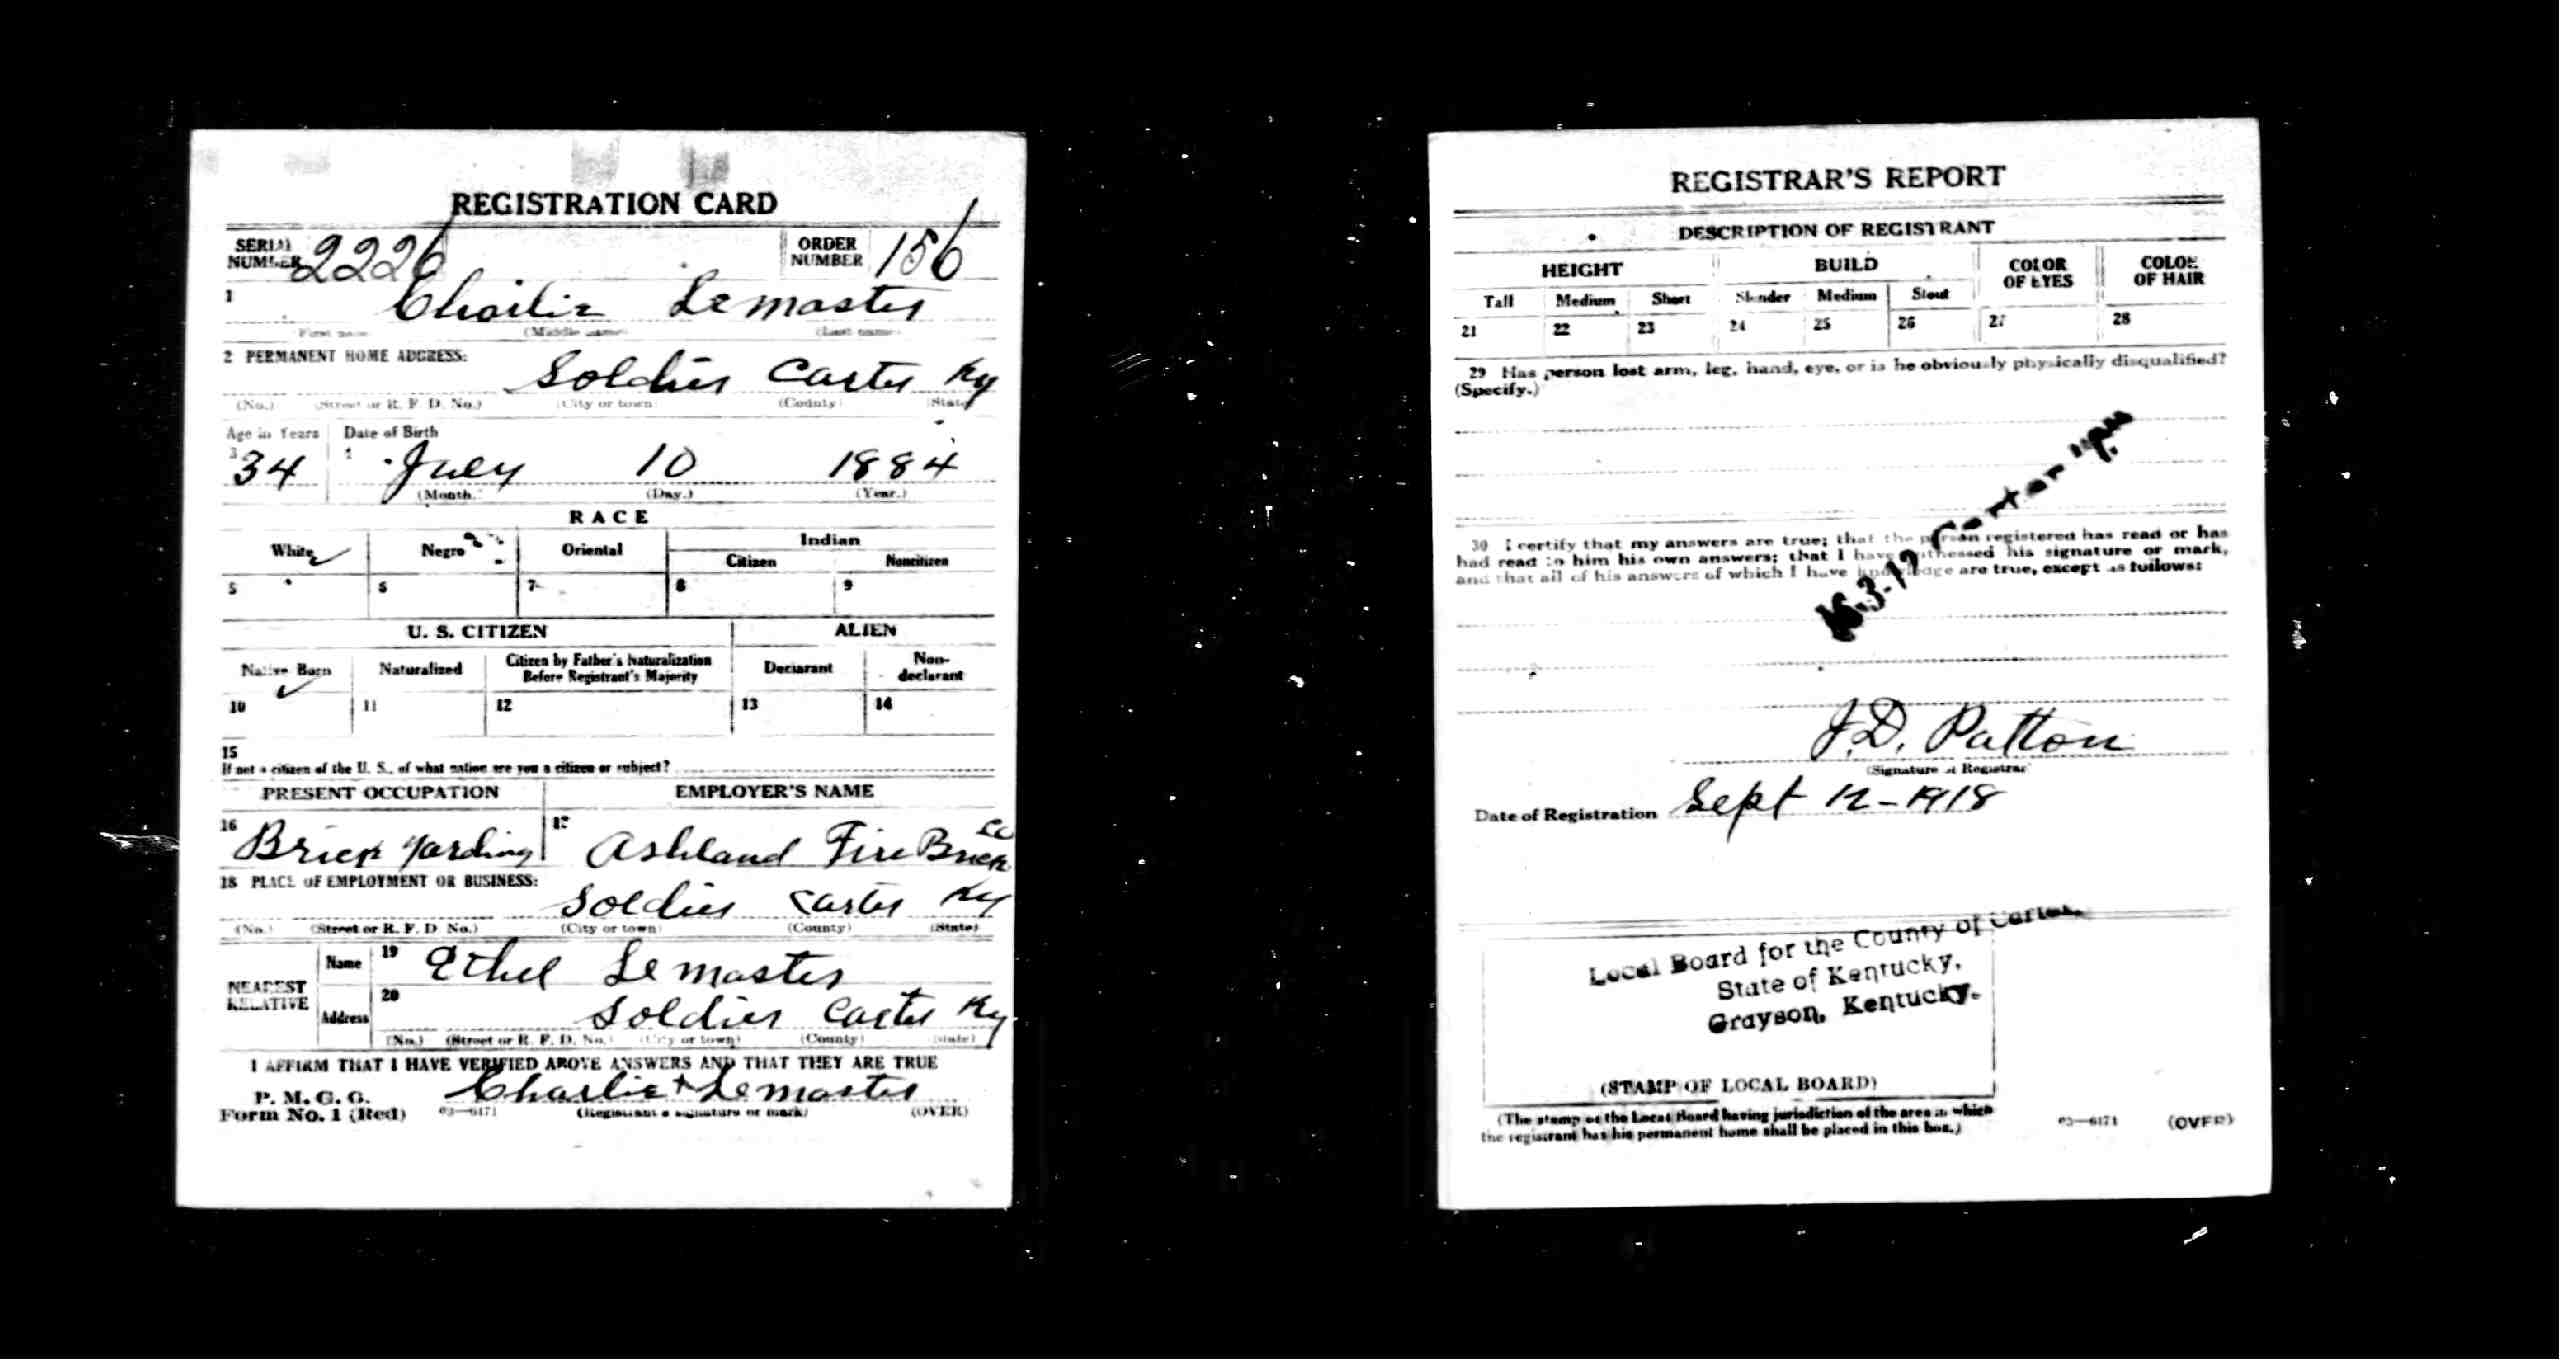 REGISTRATION CARD
SERIAL NUMBER 2226 ORDER NUMBER 156
1 Charlie Lemaster
(First name) (Middle name) (Last name)
2 PERMANENT HOME ADDRESS:
Soldier Carter Ky
(No.) (Street or R. F. D. No.) (City or town) (County) (State)
Age in Years Date of Birth
3 34 4 July 10 1884
(Month.) (Day.) (Year.)
RACE
White ✓ Negro Oriental Indian
Citizen Noncitizen
5 6 7 8 9
U. S. CITIZEN ALIEN
Native Born ✓ Naturalized Citizen by Father's Naturalization Before Registrant's Majority Declarant Non-declarant
10 11 12 13 14
15
If not a citizen of the U. S., of what nation are you a citizen or subject?
PRESENT OCCUPATION EMPLOYER'S NAME
16 Brick Yarding 17 Ashland Fire Brick Co
18 PLACE OF EMPLOYMENT OR BUSINESS:
Soldier Carter Ky
(No.) (Street or R. F. D. No.) (City or town) (County) (State)
NEAREST RELATIVE
Name 19 Ethel Lemaster
Address 20 Soldier Carter Ky
(No.) (Street or R. F. D. No.) (City or town) (County) (State)
I AFFIRM THAT I HAVE VERIFIED ABOVE ANSWERS AND THAT THEY ARE TRUE
P. M. G. O.
Form No. 1 (Red) 03—6171 Charlie + Lemaster
(Registrant's signature or mark) (OVER)
REGISTRAR'S REPORT
DESCRIPTION OF REGISTRANT
HEIGHT BUILD COLOR OF EYES COLOR OF HAIR
Tall Medium Short Slender Medium Stout
21 22 23 24 25 26 27 28
29 Has person lost arm, leg, hand, eye, or is he obviously physically disqualified?
(Specify.)
30 I certify that my answers are true; that the person registered has read or has
had read to him his own answers; that I have witnessed his signature or mark,
and that all of his answers of which I have knowledge are true, except as follows:
J. D. Patton
(Signature of Registrar)
Date of Registration Sept 12-1918
Local Board for the County of Carter,
State of Kentucky,
Grayson, Kentucky.
(STAMP OF LOCAL BOARD)
(The stamp of the Local Board having jurisdiction of the area in which
the registrant has his permanent home shall be placed in this box.)
03—6171 (OVER)